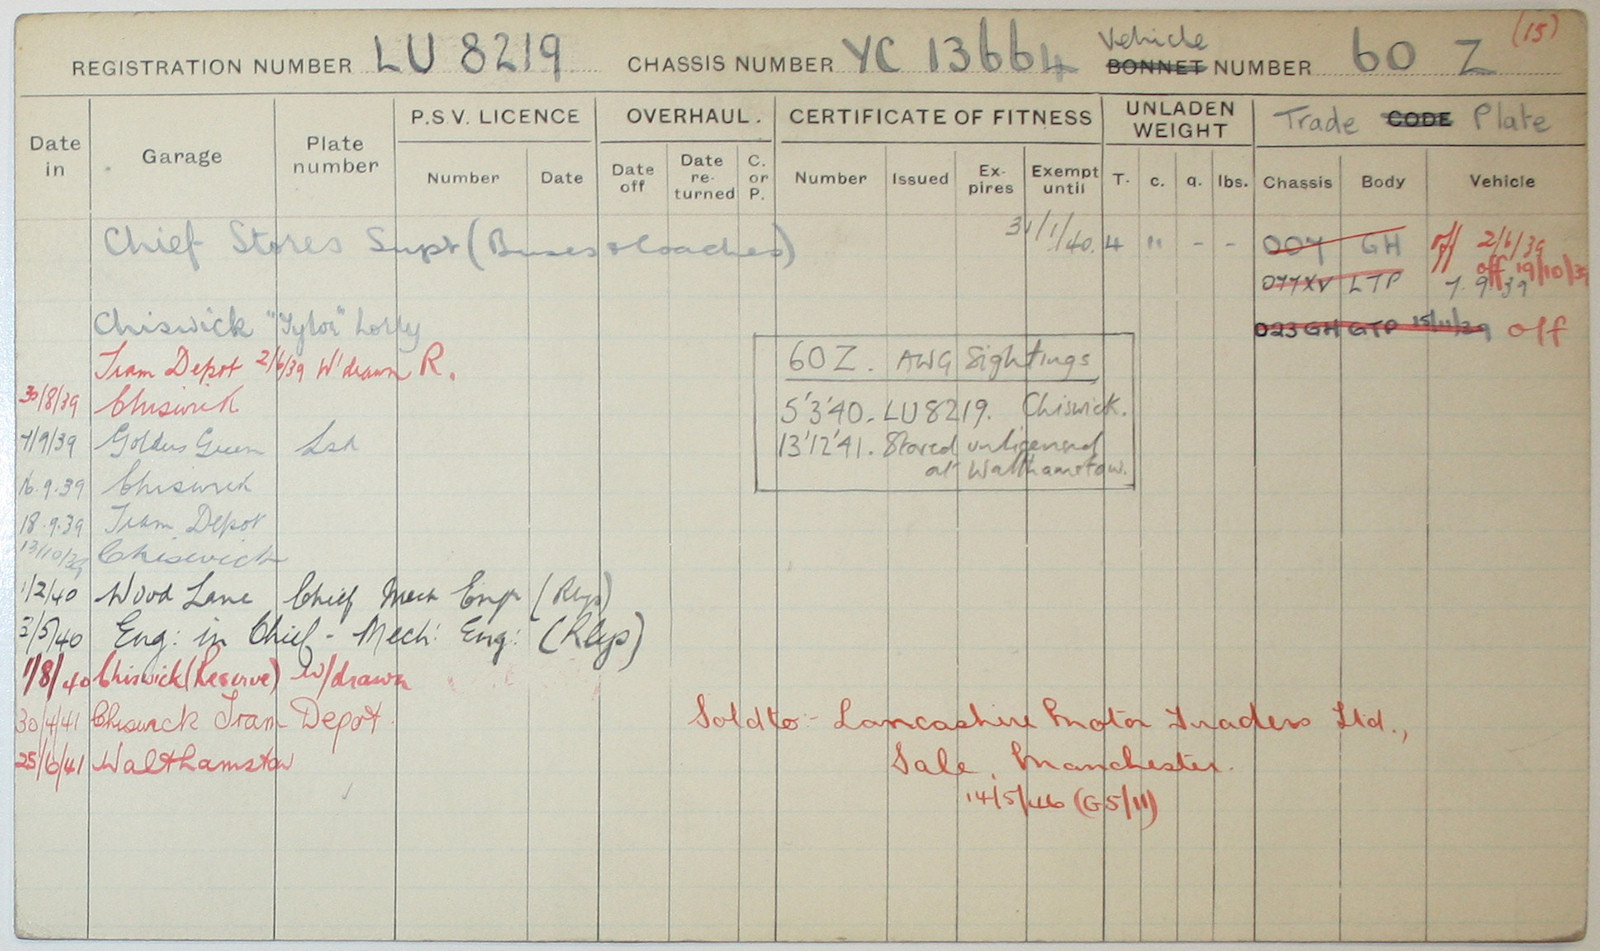 (15)
REGISTRATION NUMBER LU 8219 CHASSIS NUMBER YC 13664 Vehicle BONNET NUMBER 60 Z
Date in Garage Plate number P.S.V. LICENCE OVERHAUL. CERTIFICATE OF FITNESS UNLADEN WEIGHT Trade CODE Plate
Number Date Date off Date re-turned C. or P. Number Issued Ex-pires Exempt until T. c. q. lbs. Chassis Body Vehicle
Chief Stores Supt (Buses & Coaches) 31/1/40. 4 " - - 007 GH off 2/6/39
off 19/10/39
077XV LTP 7.9.39
Chiswick "Tylor" Lorry 023 GH GTP 15/11/39 off
Tram Depot 2/6/39 W'drawn R.
30/8/39 Chiswick
7/9/39 Golders Green
16.9.39 Chiswick
18.9.39 Tram Depot
13/10/39 Chiswick
1/2/40 Wood Lane Chief Mech Engr (Rlys)
3/5/40 Eng: in Chief - Mech: Eng: (Rlys)
1/8/40 Chiswick (Reserve) w/drawn
30/4/41 Chiswick Tram Depot.
25/6/41 Walthamstow
60Z. AWG Sightings
5'3'40. LU8219. Chiswick.
13'12'41. Stored unlicensed
at Walthamstow.
Sold to:- Lancashire Motor Traders Ltd.,
Sale, Manchester.
14/5/46 (G5/11)